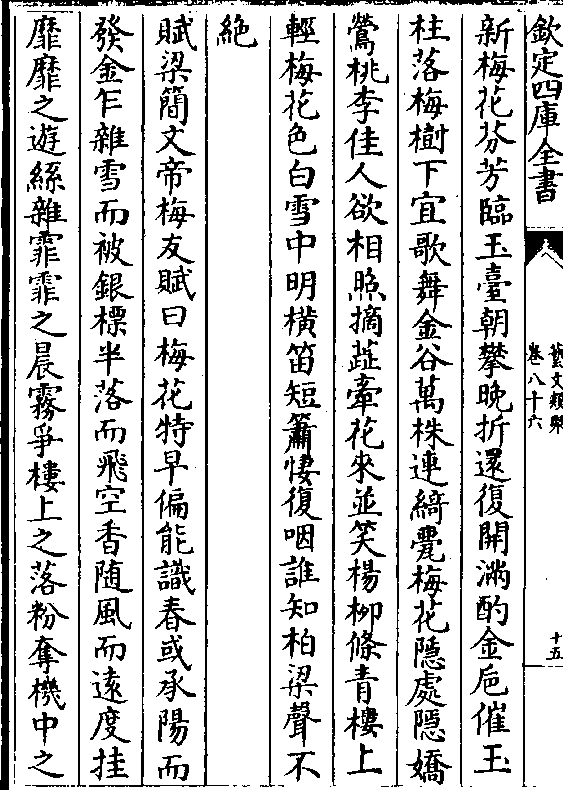 欽定四庫全書
藝文類聚
卷八十六
十五
新梅花芬芳臨玉臺朝攀晚折還復開滿酌金巵催玉
柱落梅樹下宜歌舞金谷萬株連綺甍梅花隱處隱嬌
鶯桃李佳人欲相照摘蕋牽花來並笑楊柳條青樓上
輕梅花色白雪中明橫笛短簫悽復咽誰知柏梁聲不
絶
賦梁簡文帝梅友賦曰梅花特早偏能識春或承陽而
發金乍雜雪而被銀標半落而飛空香随風而遠度挂
靡靡之遊絲雜霏霏之晨霧爭樓上之落粉奪機中之